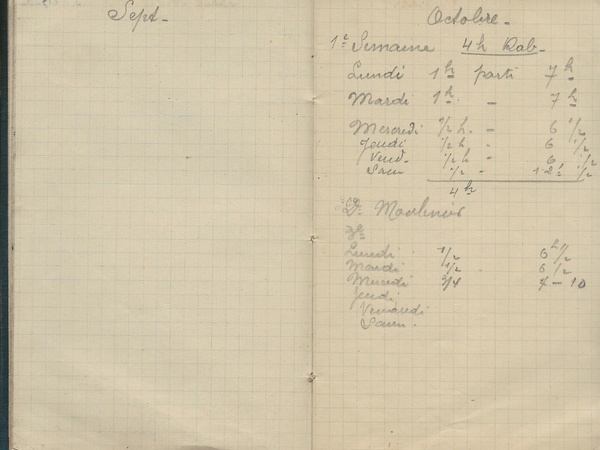 Sept-
Octobre-
1e Semaine 4h Rab-
Lundi 1h parti 7h
Mardi 1h. - 7h
Mercredi 1/2 h. - 6 1/2
Jeudi 1/2 h. - 6 1/2
Vend. 1/2 h - 6 1/2
Sam 1/2 - 12h 1/2
4h
Moulinois
Lundi 1/2 6h 1/2
Mardi 1/2 - 6 1/2
Mercredi 3/4 - 10
Jeudi
Vendredi
Sam.